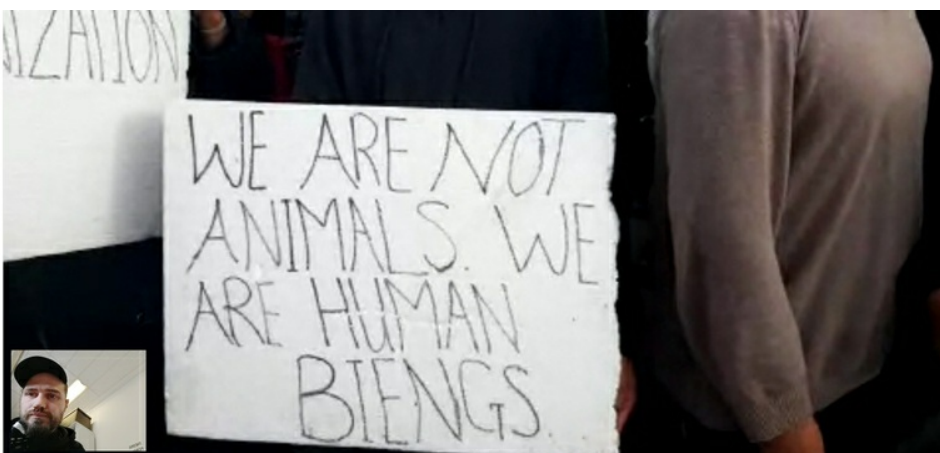 IZATION
WE ARE NOT
ANIMALS. WE
ARE HUMAN
BIENGS.